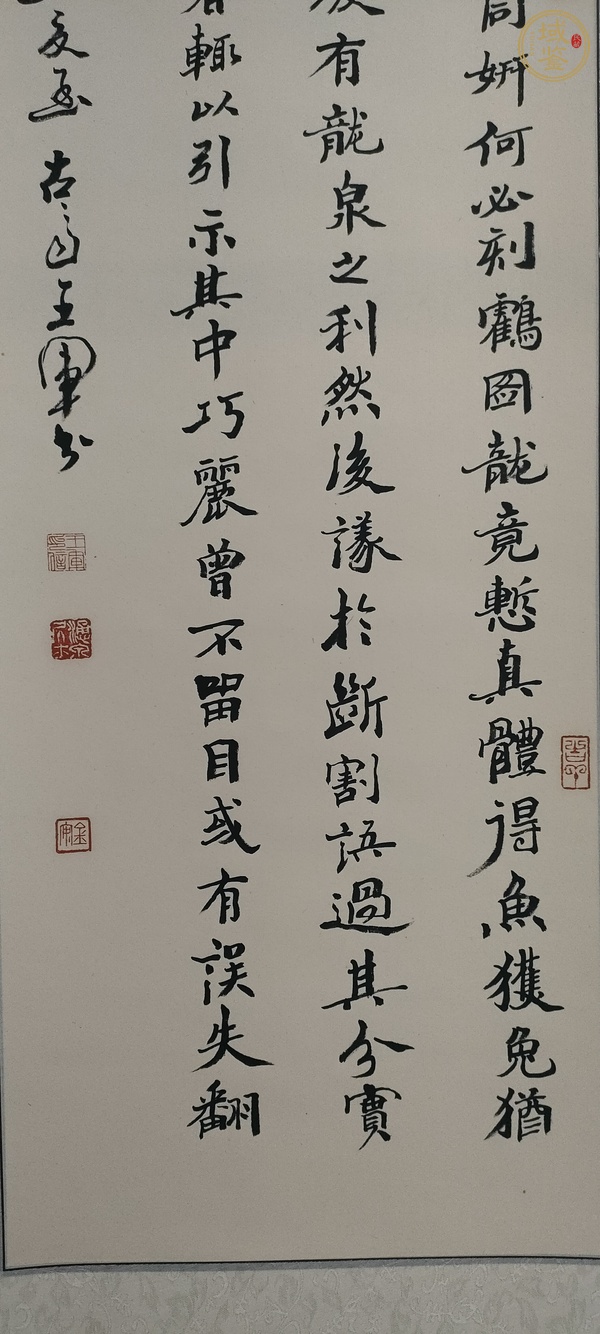 同妍何必刻鶴圖龍竟慙真體得魚獲兔猶
有龍泉之利然後議於斷割語過其分實
輒以引示其中巧麗曾不留目或有誤失翻
王軍書
王軍印信